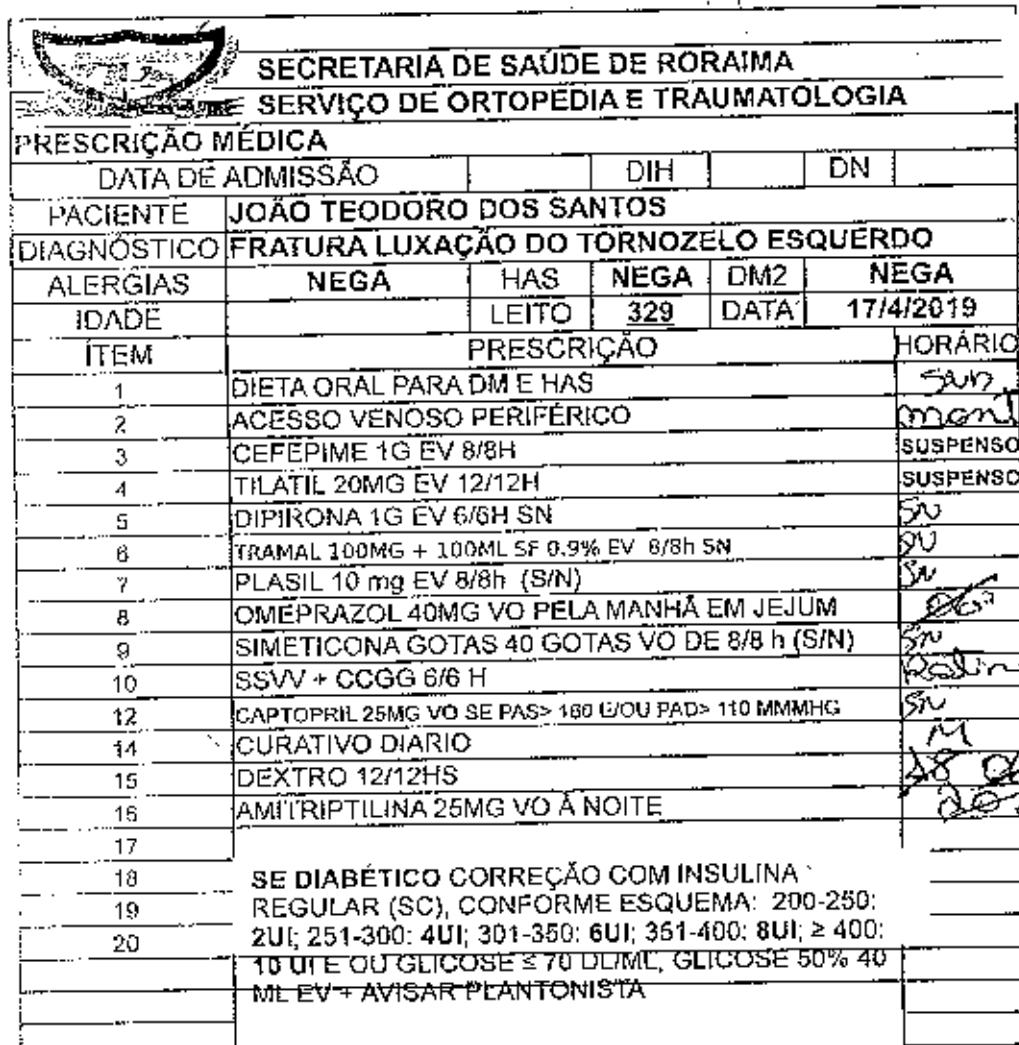 SECRETARIA DE SAÚDE DE RORAIMA
SERVIÇO DE ORTOPEDIA E TRAUMATOLOGIA
PRESCRIÇÃO MÉDICA
DATA DE ADMISSÃO DIH DN
PACIENTE JOÃO TEODORO DOS SANTOS
DIAGNÓSTICO FRATURA LUXAÇÃO DO TORNOZELO ESQUERDO
ALERGIAS NEGA HAS NEGA DM2 NEGA
IDADE LEITO 329 DATA 17/4/2019
ÍTEM PRESCRIÇÃO HORÁRIO
1 DIETA ORAL PARA DM E HAS
2 ACESSO VENOSO PERIFÉRICO
3 CEFEPIME 1G EV 8/8H SUSPENSO
4 TILATIL 20MG EV 12/12H SUSPENSO
5 DIPIRONA 1G EV 6/6H SN SN
6 TRAMAL 100MG + 100ML SF 0.9% EV 8/8h SN
7 PLASIL 10 mg EV 8/8h (S/N) SN
8 OMEPRAZOL 40MG VO PELA MANHÃ EM JEJUM
9 SIMETICONA GOTAS 40 GOTAS VO DE 8/8 h (S/N) SN
10 SSVV + CCGG 6/6 H
12 CAPTOPRIL 25MG VO SE PAS> 160 E/OU PAD> 110 MMMHG SN
14 CURATIVO DIARIO M
15 DEXTRO 12/12HS
16 AMITRIPTILINA 25MG VO À NOITE
17
18 SE DIABÉTICO CORREÇÃO COM INSULINA
19 REGULAR (SC), CONFORME ESQUEMA: 200-250:
20 2UI; 251-300: 4UI; 301-350: 6UI; 351-400: 8UI; ≥ 400:
10 UI E OU GLICOSE ≤ 70 DL/ML, GLICOSE 50% 40
ML EV + AVISAR PLANTONISTA